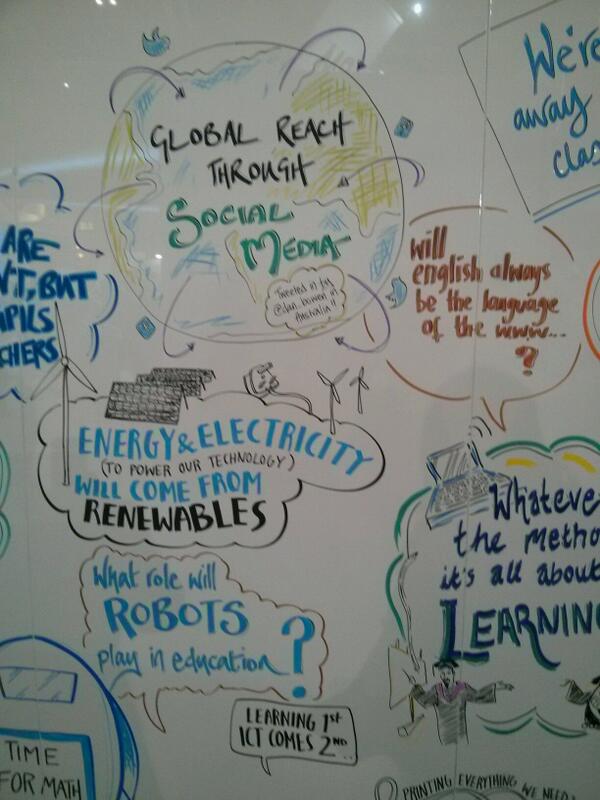 GLOBAL REACH
THROUGH
SOCIAL
MEDIA
Tweeted in by
@dan bowen in
Australia!
We're
away
clas
ARE
BUT
PILS
CHERS
will
english always
be the language
of the www...
?
ENERGY & ELECTRICITY
(TO POWER OUR TECHNOLOGY)
WILL COME FROM
RENEWABLES
Whateve
the metho
it's all about
LEARNING
What role will
ROBOTS
play in education
?
LEARNING 1st
ICT COMES 2ND...
TIME
FOR MATH
PRINTING EVERYTHING WE NEED